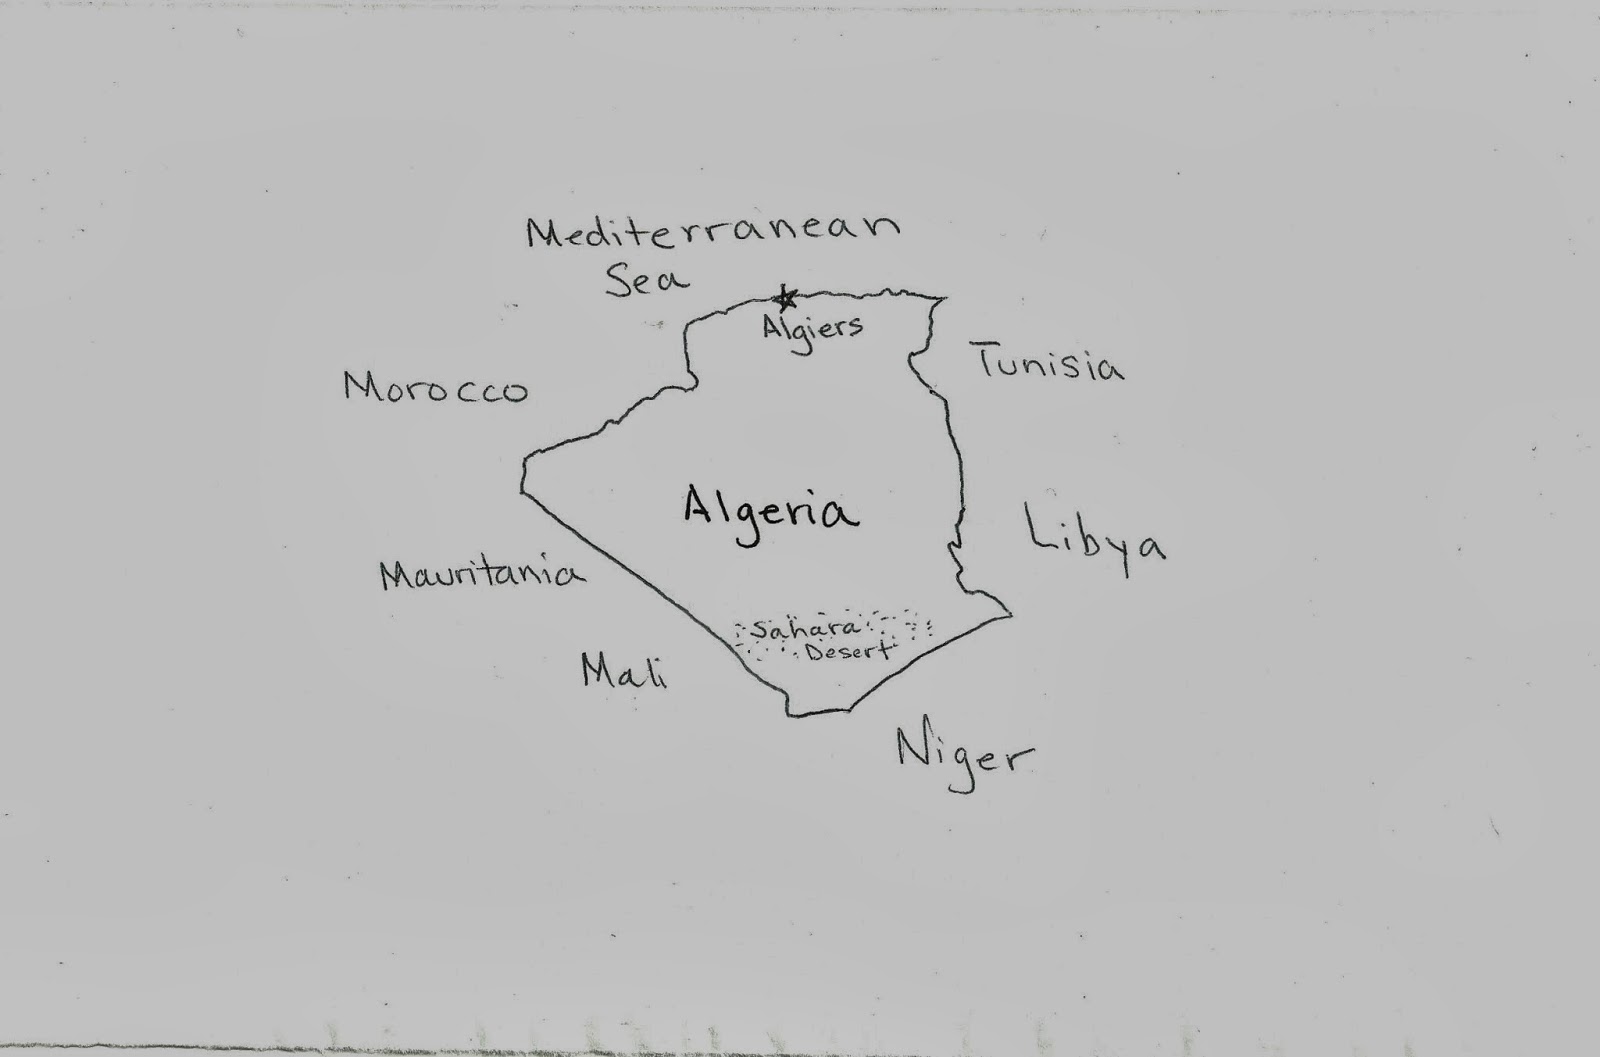 Mediterranean
Sea
Algiers
Tunisia
Morocco
Algeria
Libya
Mauritania
Sahara
Desert
Mali
Niger